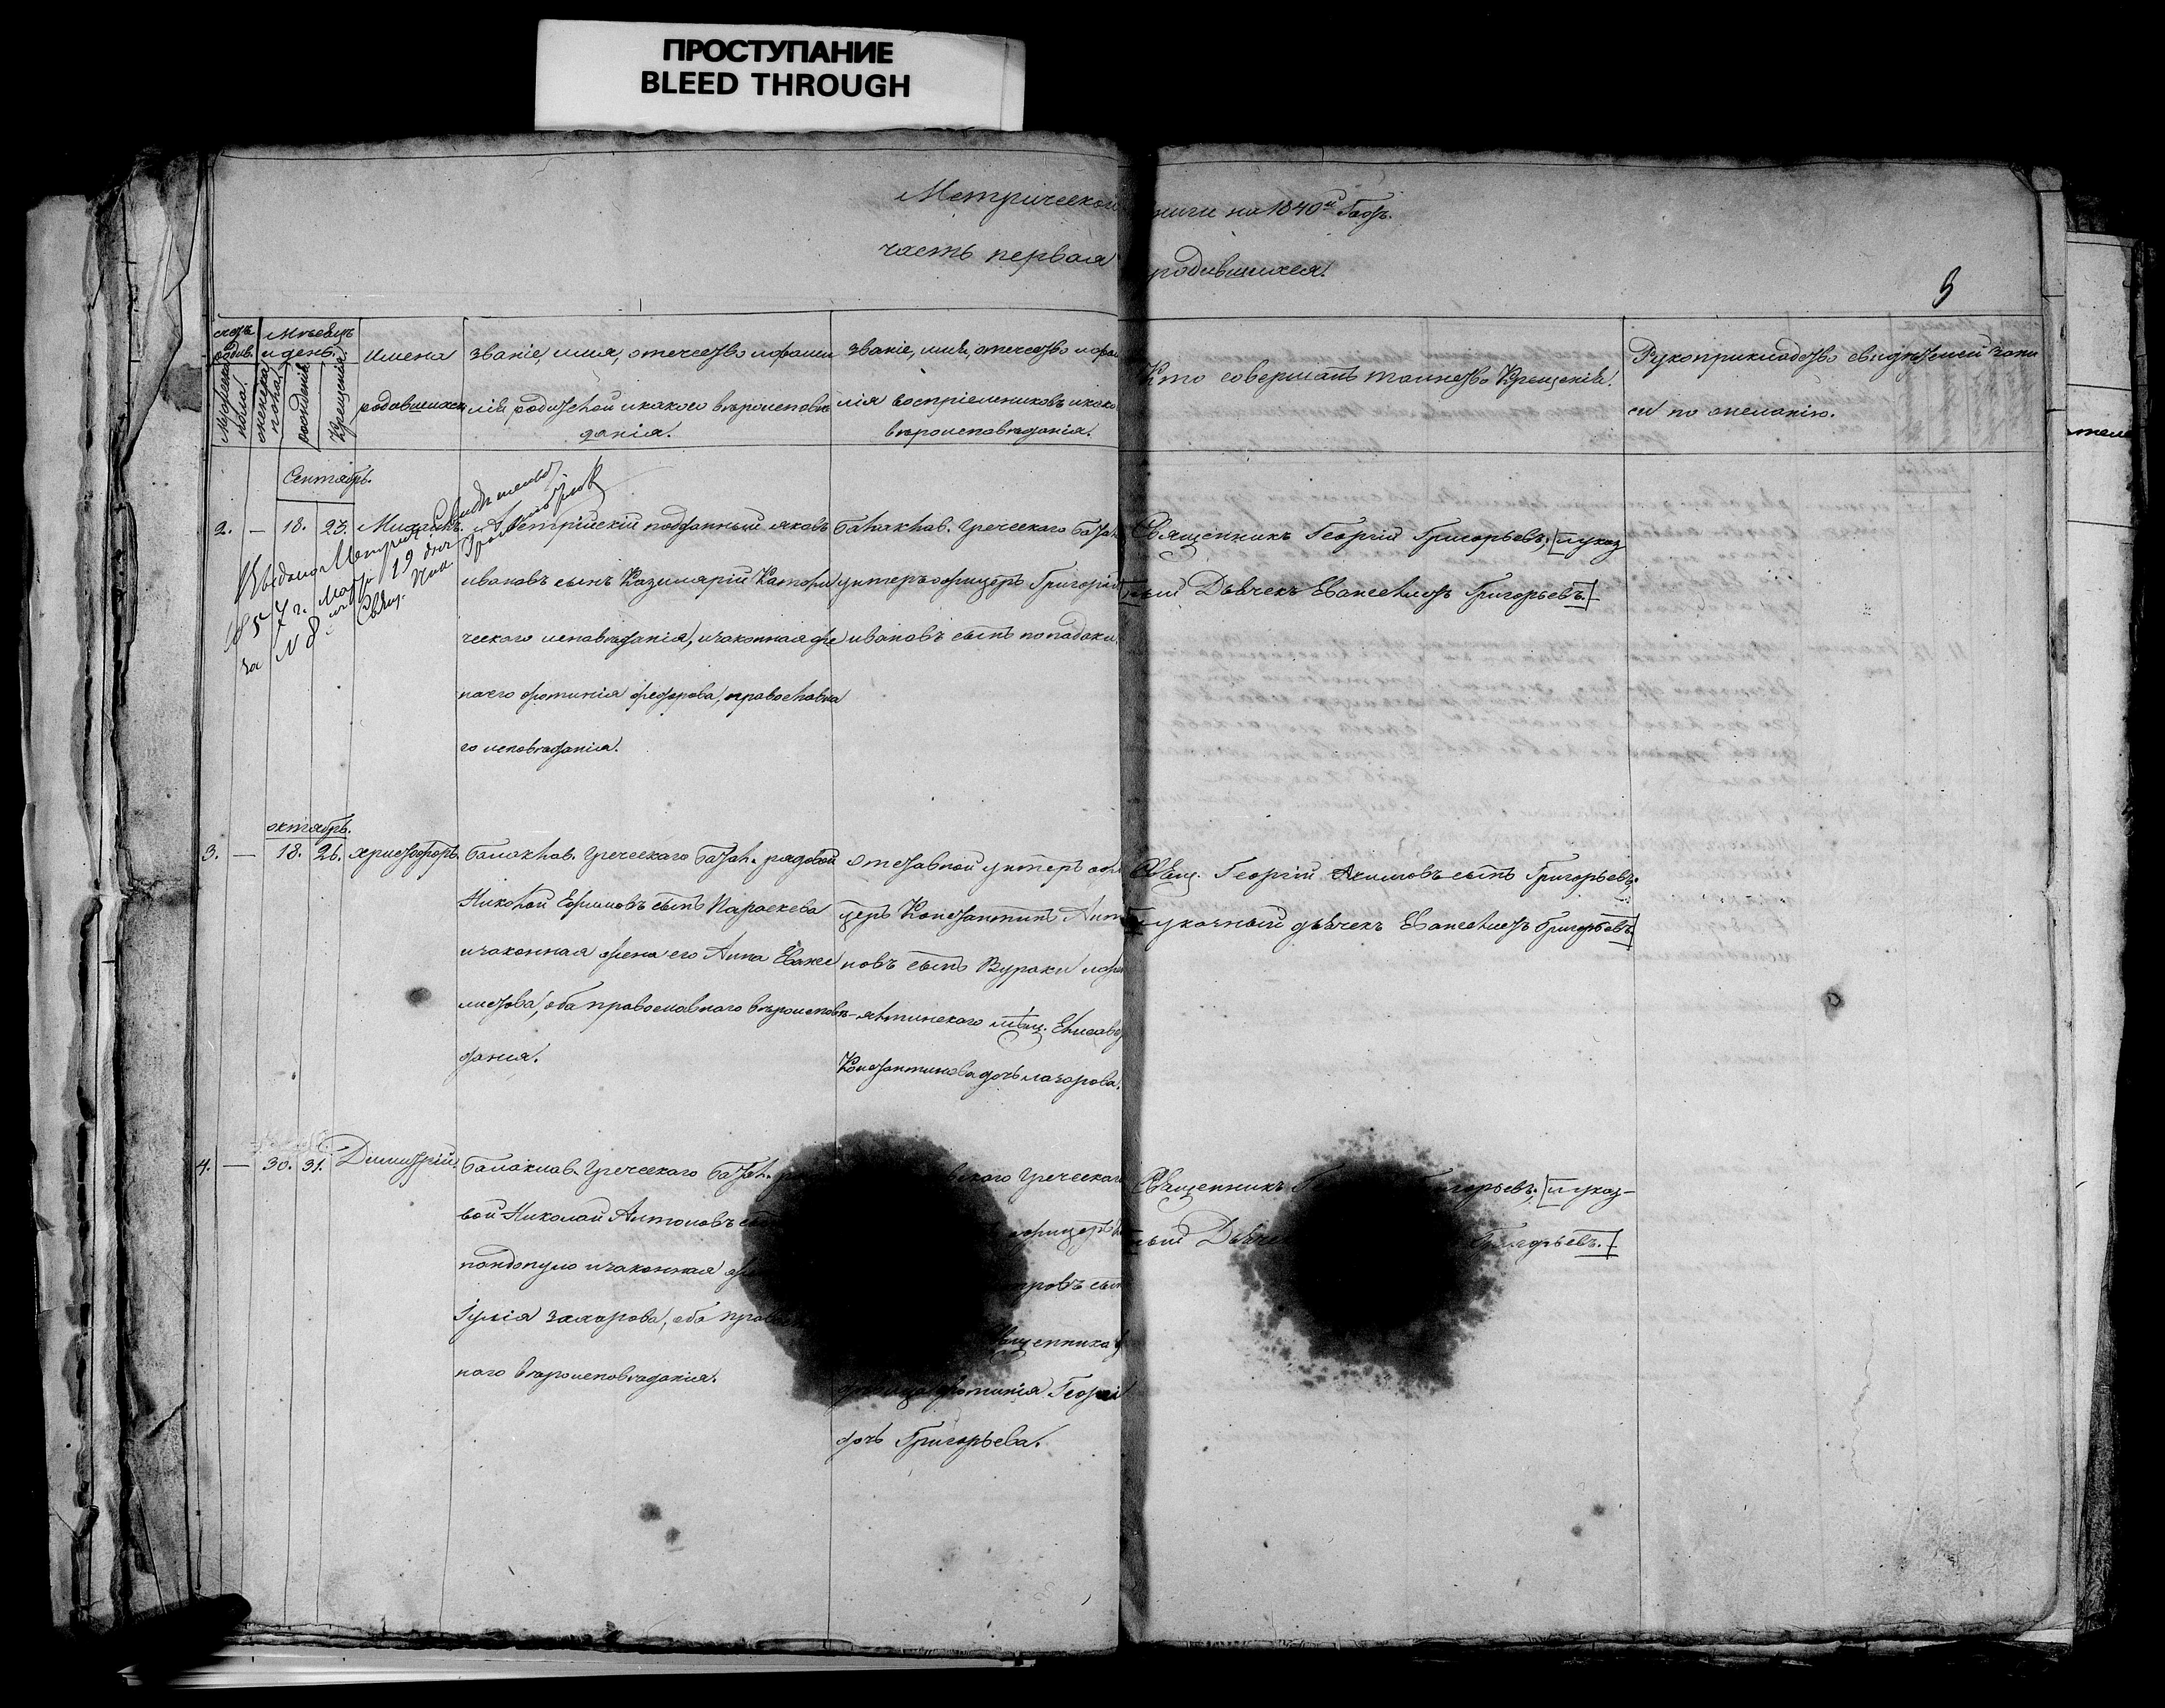 ПРОСТУПАНИЕ
BLEED THROUGH
Метрической книги на 1840й Годъ.
часть первая родившихся.
3
счетъ родив.
Мужеска пола.
женска пола.
Мѣсяцъ и день.
рожденія
Крещенія.
Имена
родившихся
Званіе, имя, отечество и фами
лія родителей и какого вѣроисповѣ
данія.
Званіе, имя, отечество и фами
лія воспріемниковъ и како
вѣроисповѣданія.
Кто совершалъ таинство Крещенія.
Рукоприкладство свидѣтелей запи
си по желанію.
Сентябрь.
2. — 18. 23. Михаилъ.
Выдано Метрич. Свидѣтельст.
1857 г. Марта 19 дня
за № 8.
Свящ.
Австрійскій подданный Яковъ
Ивановъ сынъ Казимирій Католи
ческого исповѣданія, и законная же
на его Фотинія Федорова, православна
го исповѣданія.
Балаклав. Греческаго Батал.
унтеръ офицеръ Григорій
Ивановъ сынъ
Священникъ Георгій Григорьевъ, [и указ
ный Дьячекъ Евангелистъ Григорьевъ.]
октябрь.
3. — 18. 26. Христофоръ.
Балаклав. Греческаго Батал. рядовой
Николай Ефимовъ сынъ Параскева
и законная жена его Анна Еванге
листова, оба православнаго вѣроисповѣ-
данія.
Отставной унтеръ офи
церъ Константинъ Анто
новъ сынъ Вураки и
ялтинскаго мѣщ. Елисавет
Константинова дочь Лазарова.
Свящ. Георгій Акимовъ сынъ Григорьевъ,
[и указный дьячекъ Евангелистъ Григорьевъ.]
4. — 30. 31. Димитрій.
Балаклав. Греческаго Батал. ря
вой Николай Антоновъ сын
пандопуло и законная же
Іулія Захарова, оба правос
наго вѣроисповѣданія.
вскаго Греческаго
офицеръ
тровъ сын
вященника
Фотинія Георгі
дочь Григорьева.
Священникъ Г горьевъ, [и указ-
ный Дьяче Григорьевъ.]